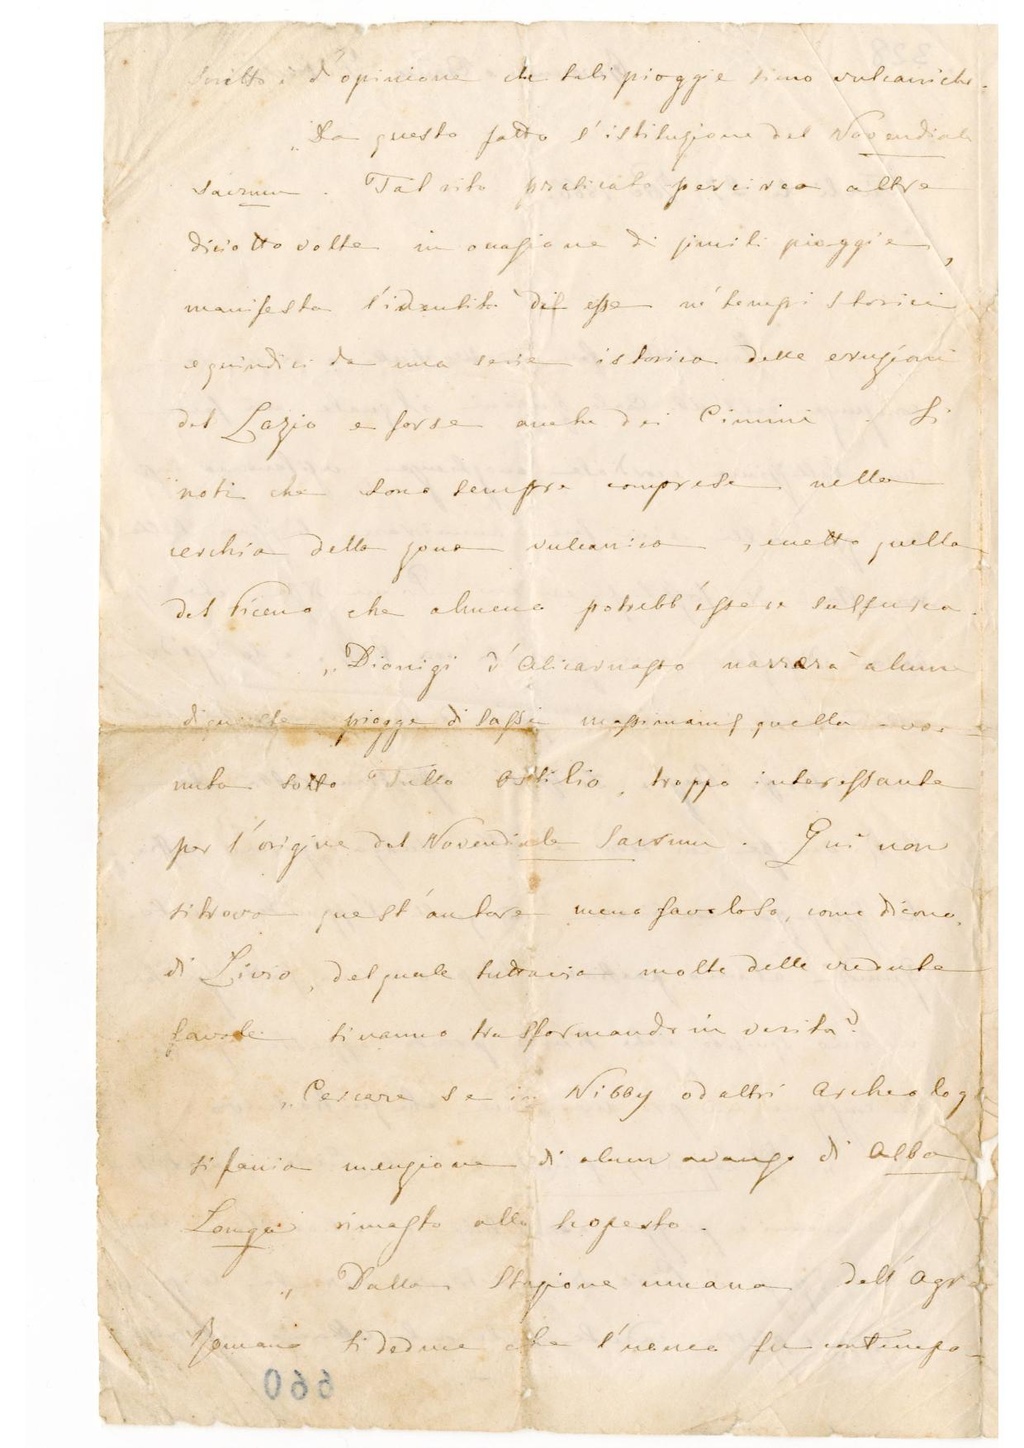 scritto è d'opinione che tali pioggie siano vulcaniche.
„Da questo fatto l'istituzione del Novendiale
sacrum. Tal rito praticato per circa altre
diciotto volte in occasione di simili pioggie,
manifesta l'identità di esse ne' tempi storici
e quindi ci da una serie istorica delle eruzioni
del Lazio e forse anche dei Cimini. Si
noti che sono sempre comprese nella
cerchia della zona vulcanica, eccetto quella
del Piceno che almeno potrebb'essere sulfurea.
„Dionigi d'Alicarnasso narrerà alcune
di queste piogge di sassi massimamente quella avve-
nuta sotto Tullo Ostilio, troppo interessante
per l'origine del Novendiale Sacrum. Qui non
si trova quest'autore meno favoloso, come dicono,
di Livio, del quale tuttavia molte delle credute
favole si vanno trasformando in verità?
„Cercare se in Nibby od altri Archeologi
si faccia menzione di alcun avanzo di Alba
Longa rimasto allo scoperto.
„Dalla Stazione umana dell'Agro
Romano si deduce che l'uomo fu contempo-
660